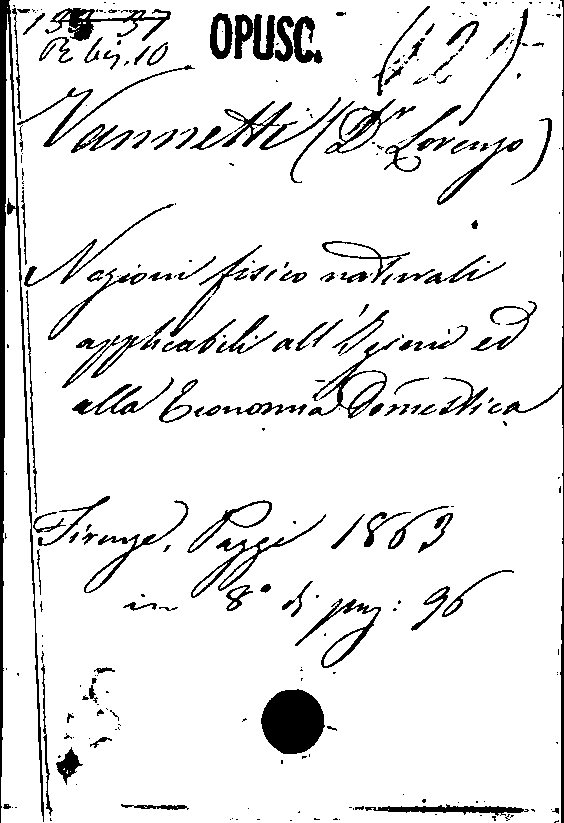 OPUSC. (12).
R. bis. 10
Vannetti (Dr Lorenzo)
Nozioni fisico naturali
applicabili all'Igiene ed
alla Economia Domestica
Firenze, Poggi 1863
in 8° di pag: 96